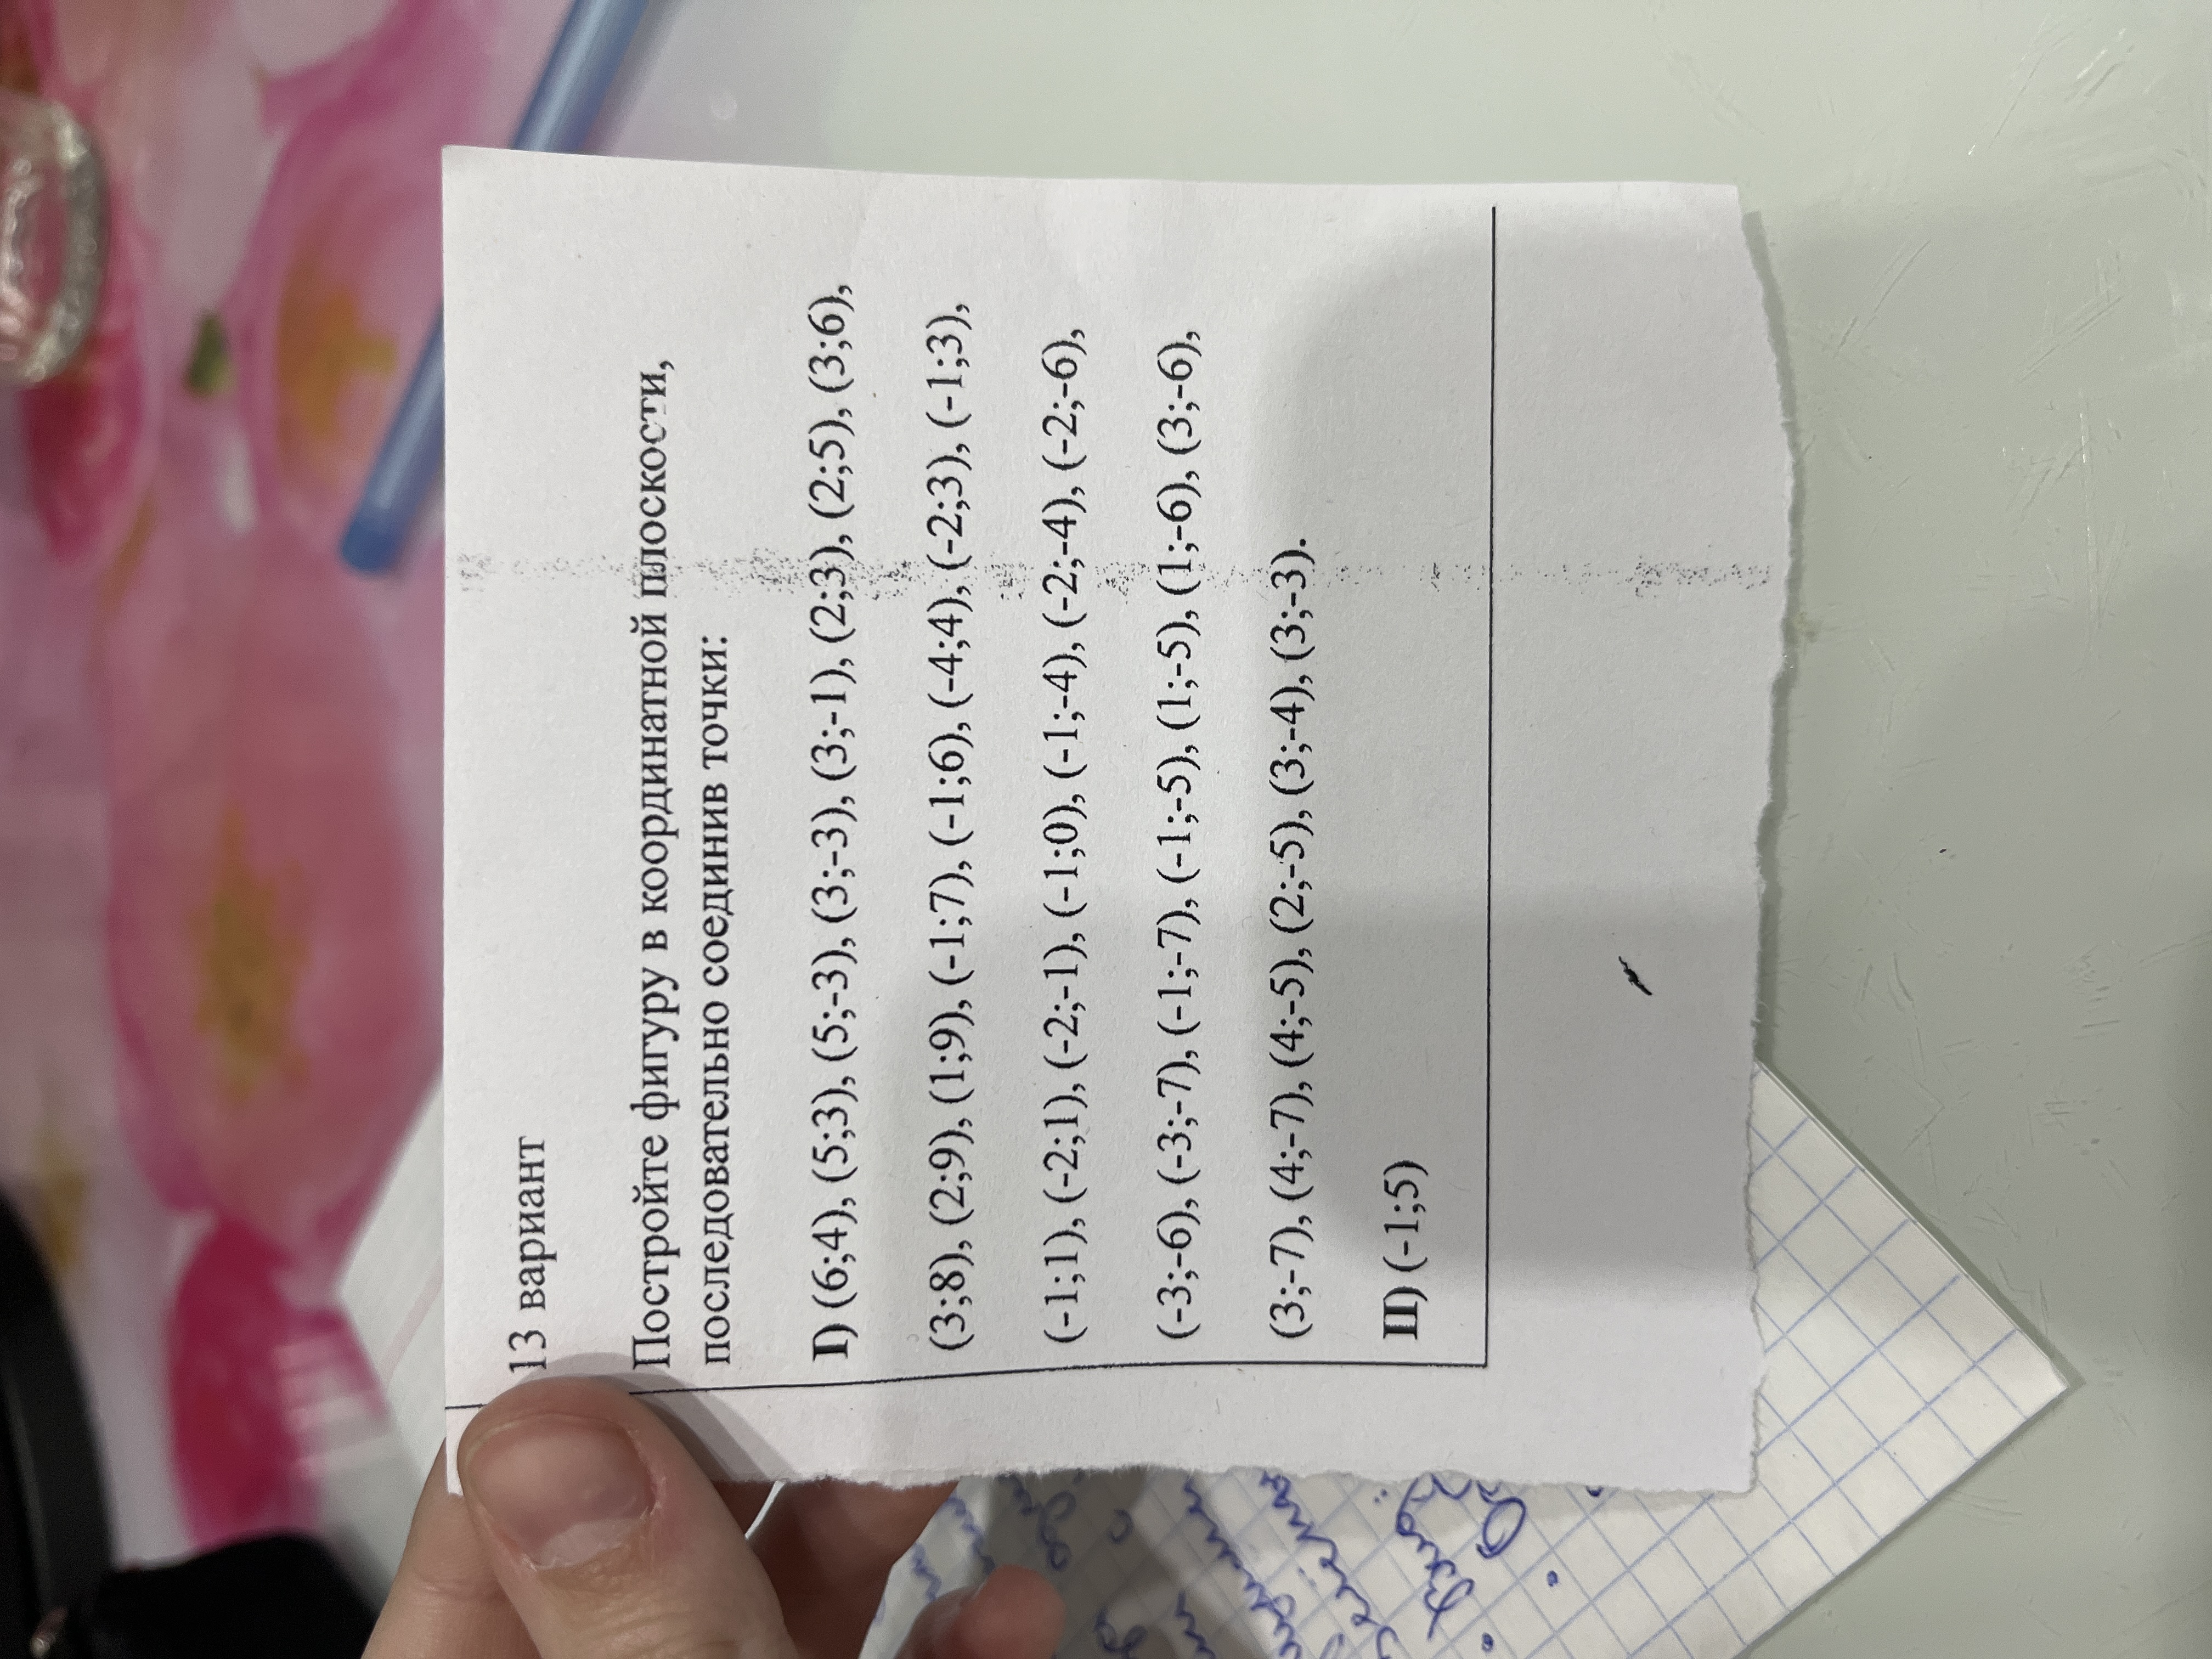 13 вариант
Постройте фигуру в координатной плоскости,
последовательно соединив точки:
I) (6;4), (5;3), (5;-3), (3;-3), (3;-1), (2;3), (2;5), (3;6),
(3;8), (2;9), (1;9), (-1;7), (-1;6), (-4;4), (-2;3), (-1;3),
(-1;1), (-2;1), (-2;-1), (-1;0), (-1;-4), (-2;-4), (-2;-6),
(-3;-6), (-3;-7), (-1;-7), (-1;-5), (1;-5), (1;-6), (3;-6),
(3;-7), (4;-7), (4;-5), (2;-5), (3;-4), (3;-3).
II) (-1;5)